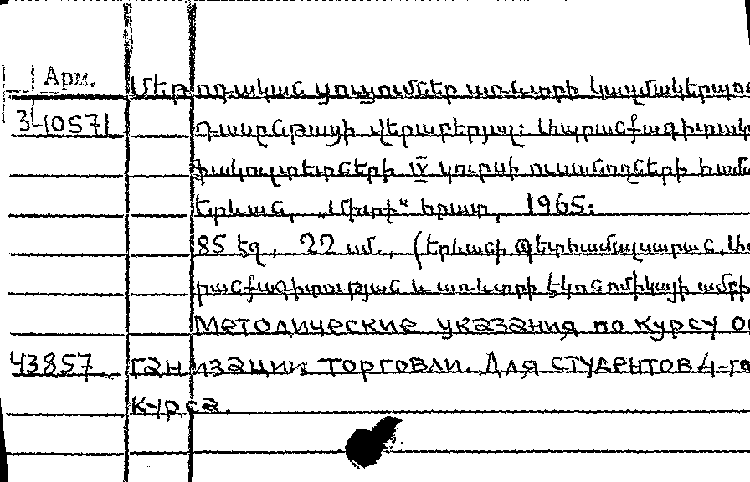 Арм. Մեթոդական ցուցումներ առևտրի կազմակերպու
3-10571 Դասընթացի վերաբերյալ: Ապրանքագիտակ
ֆակուլտետների IV կուրսի ուսանողների համ
Երևան, „Միտք“ հրատ, 1965:
85 էջ, 22 սմ., (Երևանի Պետհամալսարան. Ապ
րանքագիտության և առևտրի էկոնոմիկայի ամբի
Методические указания по курсу ор
43857 ганизации торговли. Для студентов 4-го
курса.